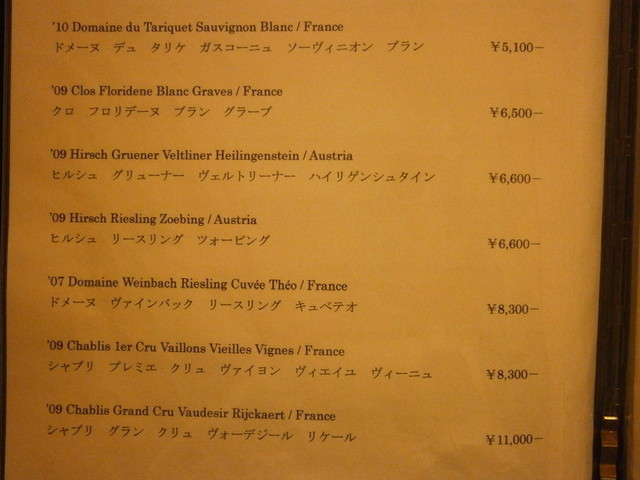 '10 Domaine du Tariquet Sauvignon Blanc / France
ドメーヌ　デュ　タリケ　ガスコーニュ　ソーヴィニオン　ブラン　￥5,100−
'09 Clos Floridene Blanc Graves / France
クロ　フロリデーヌ　ブラン　グラーブ　￥6,500−
'09 Hirsch Gruener Veltliner Heilingenstein / Austria
ヒルシュ　グリューナー　ヴェルトリーナー　ハイリゲンシュタイン　￥6,600−
'09 Hirsch Riesling Zoebing / Austria
ヒルシュ　リースリング　ツォービング　￥6,600−
'07 Domaine Weinbach Riesling Cuvée Théo / France
ドメーヌ　ヴァインバック　リースリング　キュベテオ　￥8,300−
'09 Chablis 1er Cru Vaillons Vieilles Vignes / France
シャブリ　プレミエ　クリュ　ヴァイヨン　ヴィエイユ　ヴィーニュ　￥8,300−
'09 Chablis Grand Cru Vaudesir Rijckaert / France
シャブリ　グラン　クリュ　ヴォーデジール　リケール　￥11,000−